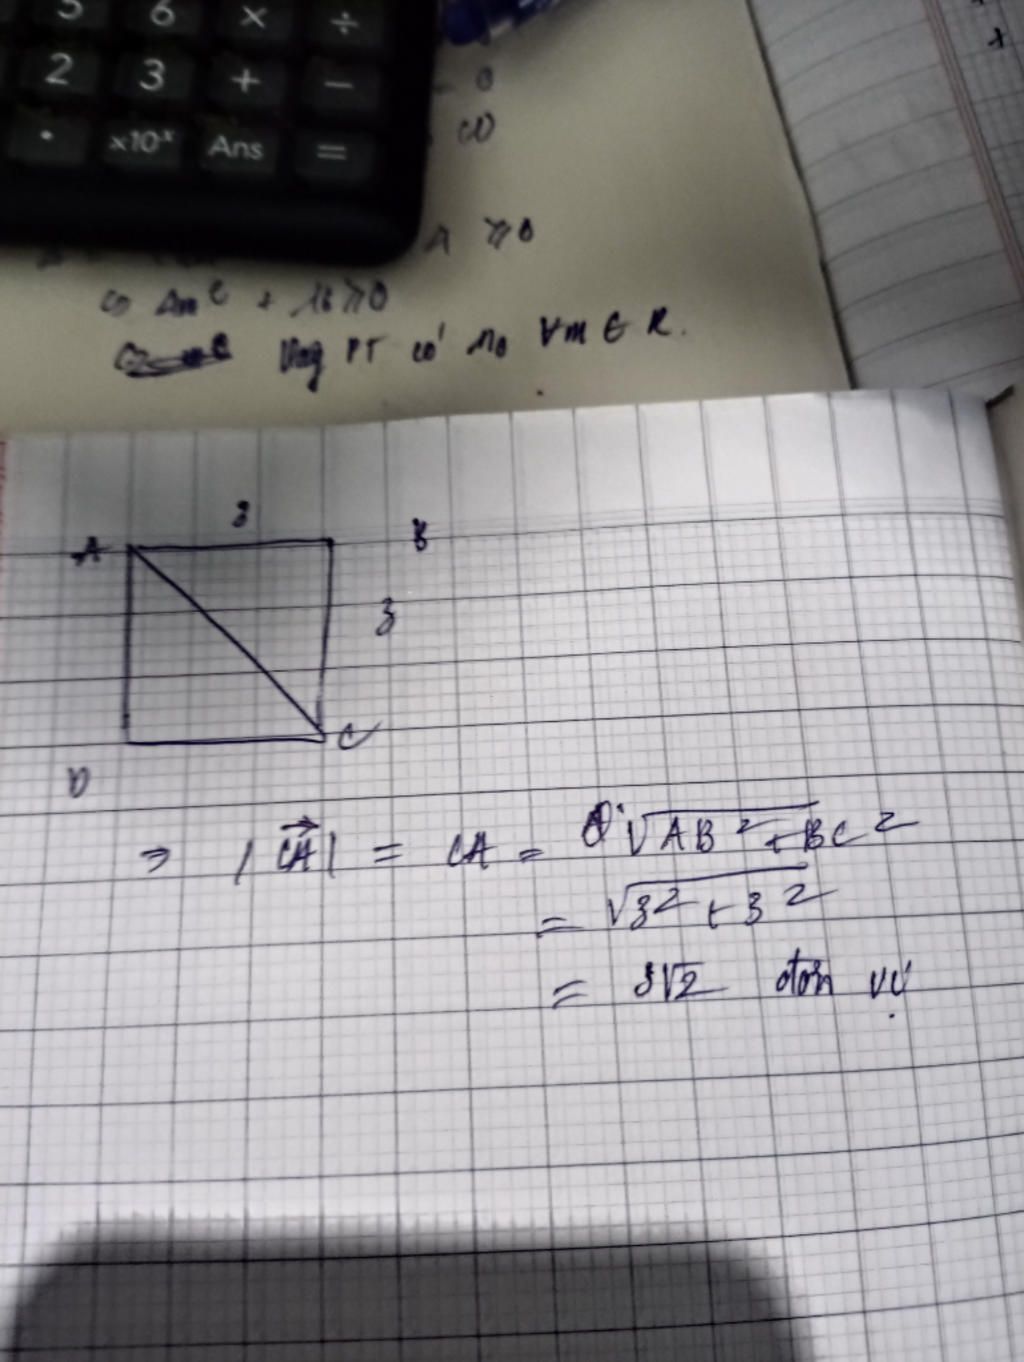 5 6 × ÷
2 3 + −
· ×10ˣ Ans =
0
A ⩾ 0
+ 16 ⩾ 0
Vậy PT có n₀ ∀m ∈ R.
3
A B
3
C
D
⇒ |CA⃗| = CA = √AB² + BC²
= √3² + 3²
= 3√2 đơn vị